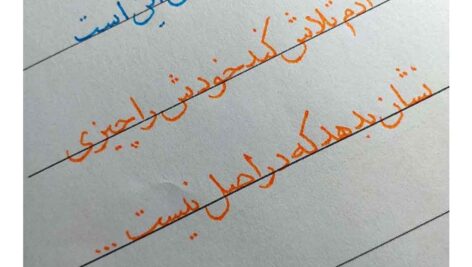 این است
آدم تلاش کند خودش را چیزی
نشان بدهد که در اصل نیست ...